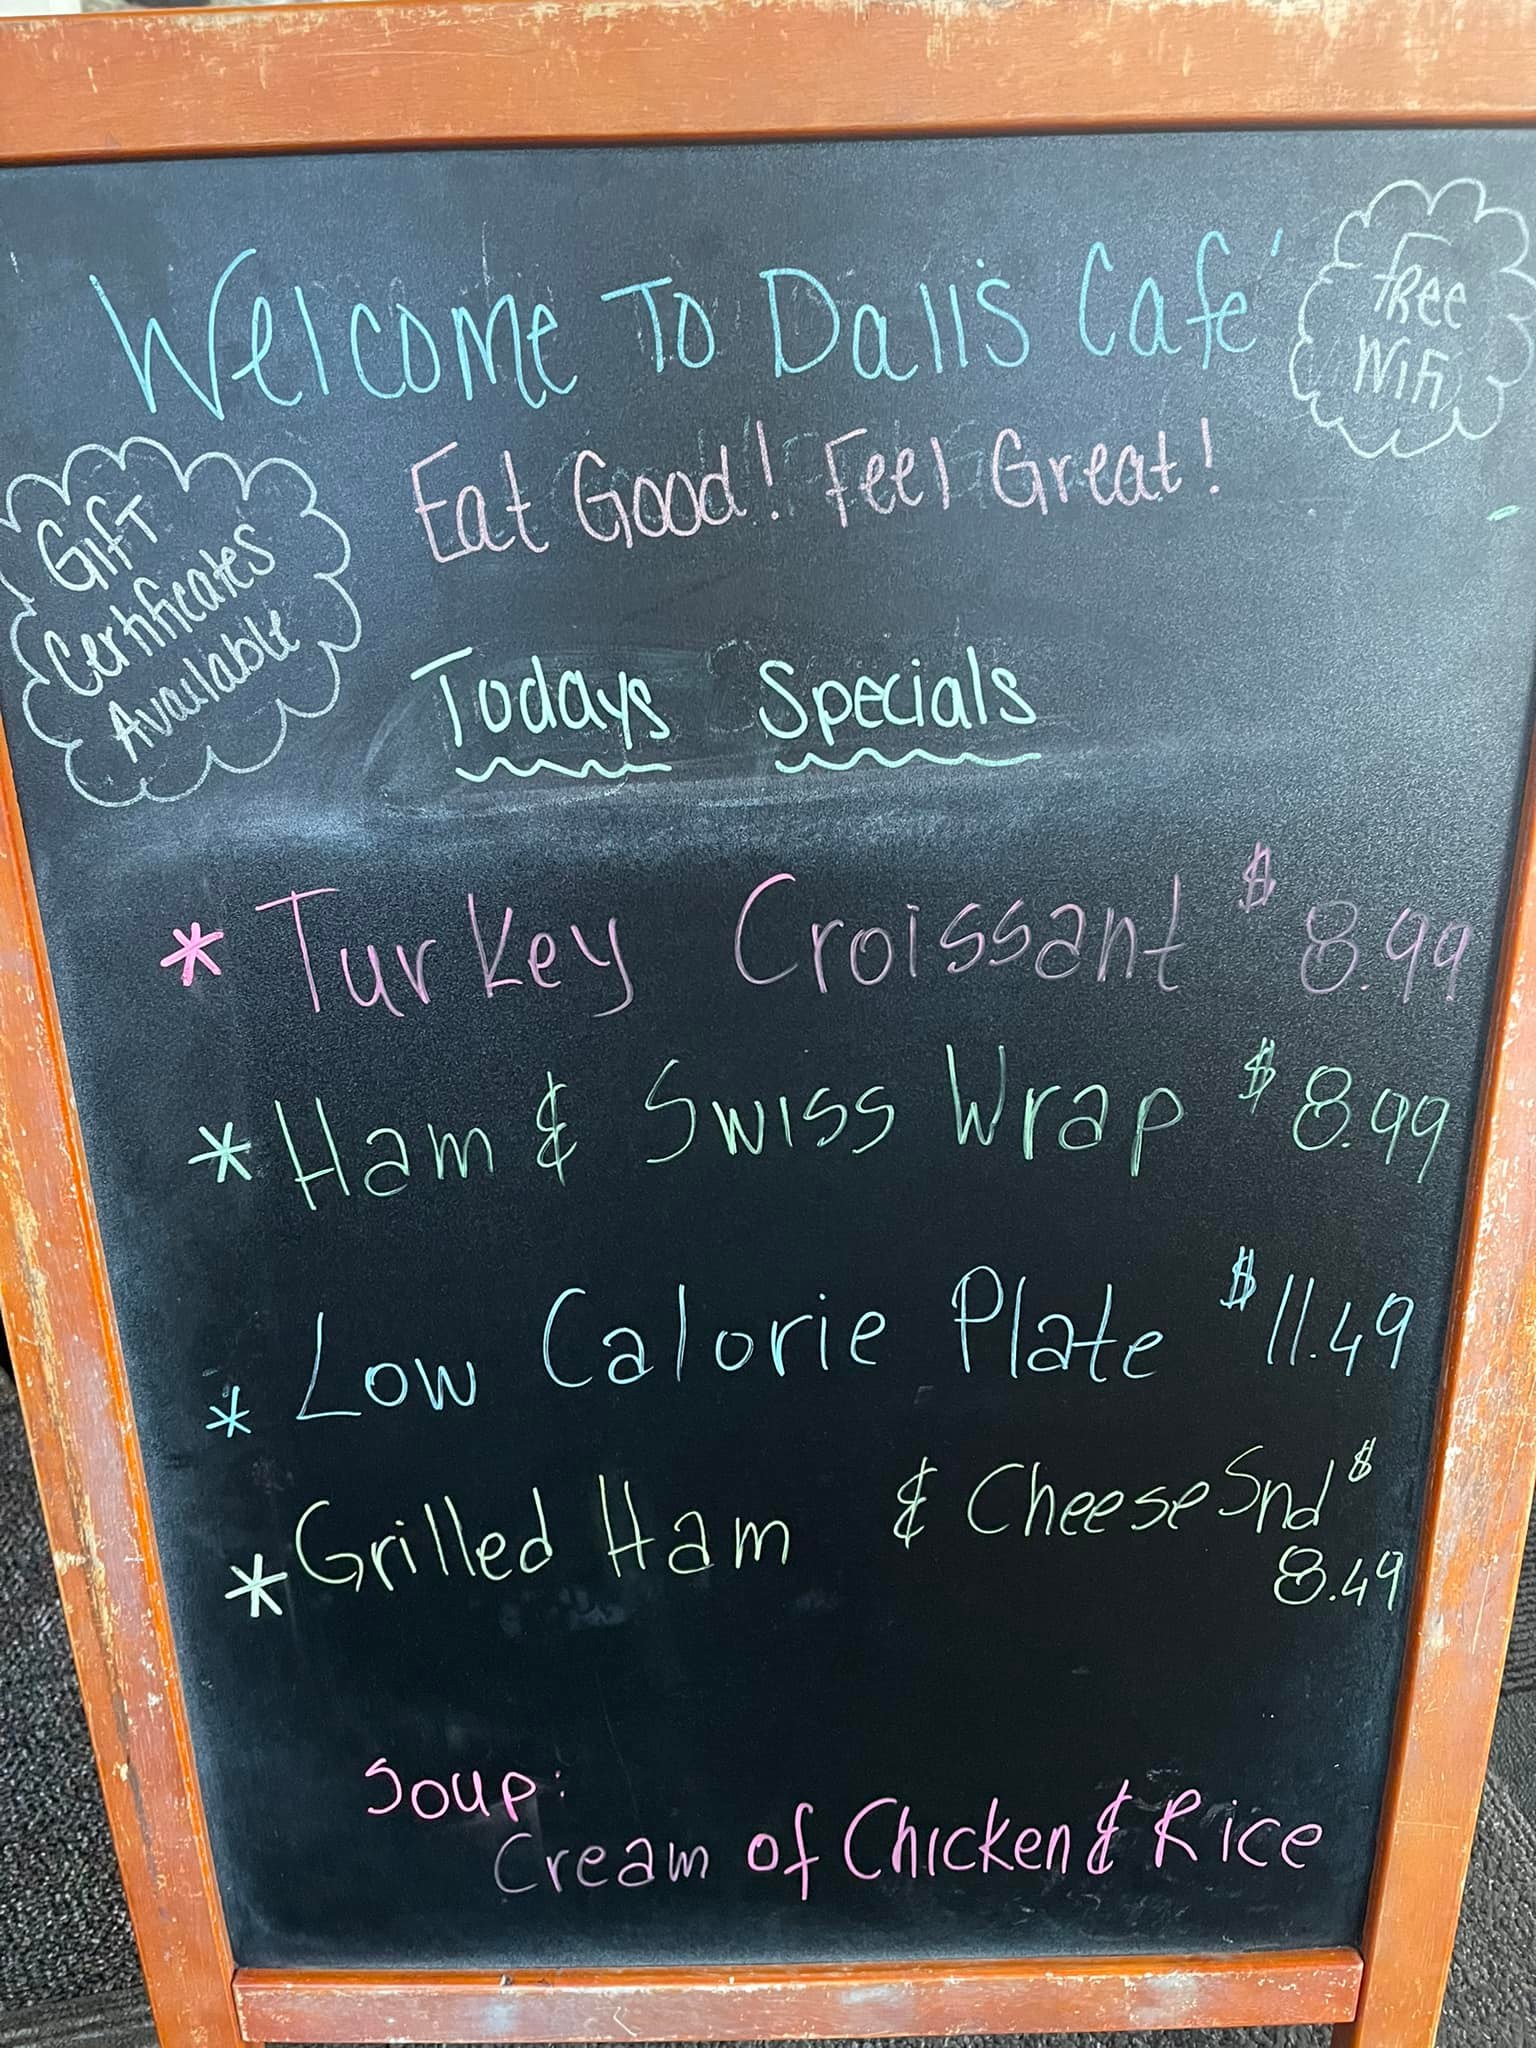 Welcome To Dall's Café
Free
WiFi
Eat Good! Feel Great!
Gift
Certificates
Available
Todays Specials
* Turkey Croissant $8.99
* Ham & Swiss Wrap $8.99
* Low Calorie Plate $11.49
* Grilled Ham & Cheese Snd $
8.49
Soup:
Cream of Chicken & Rice